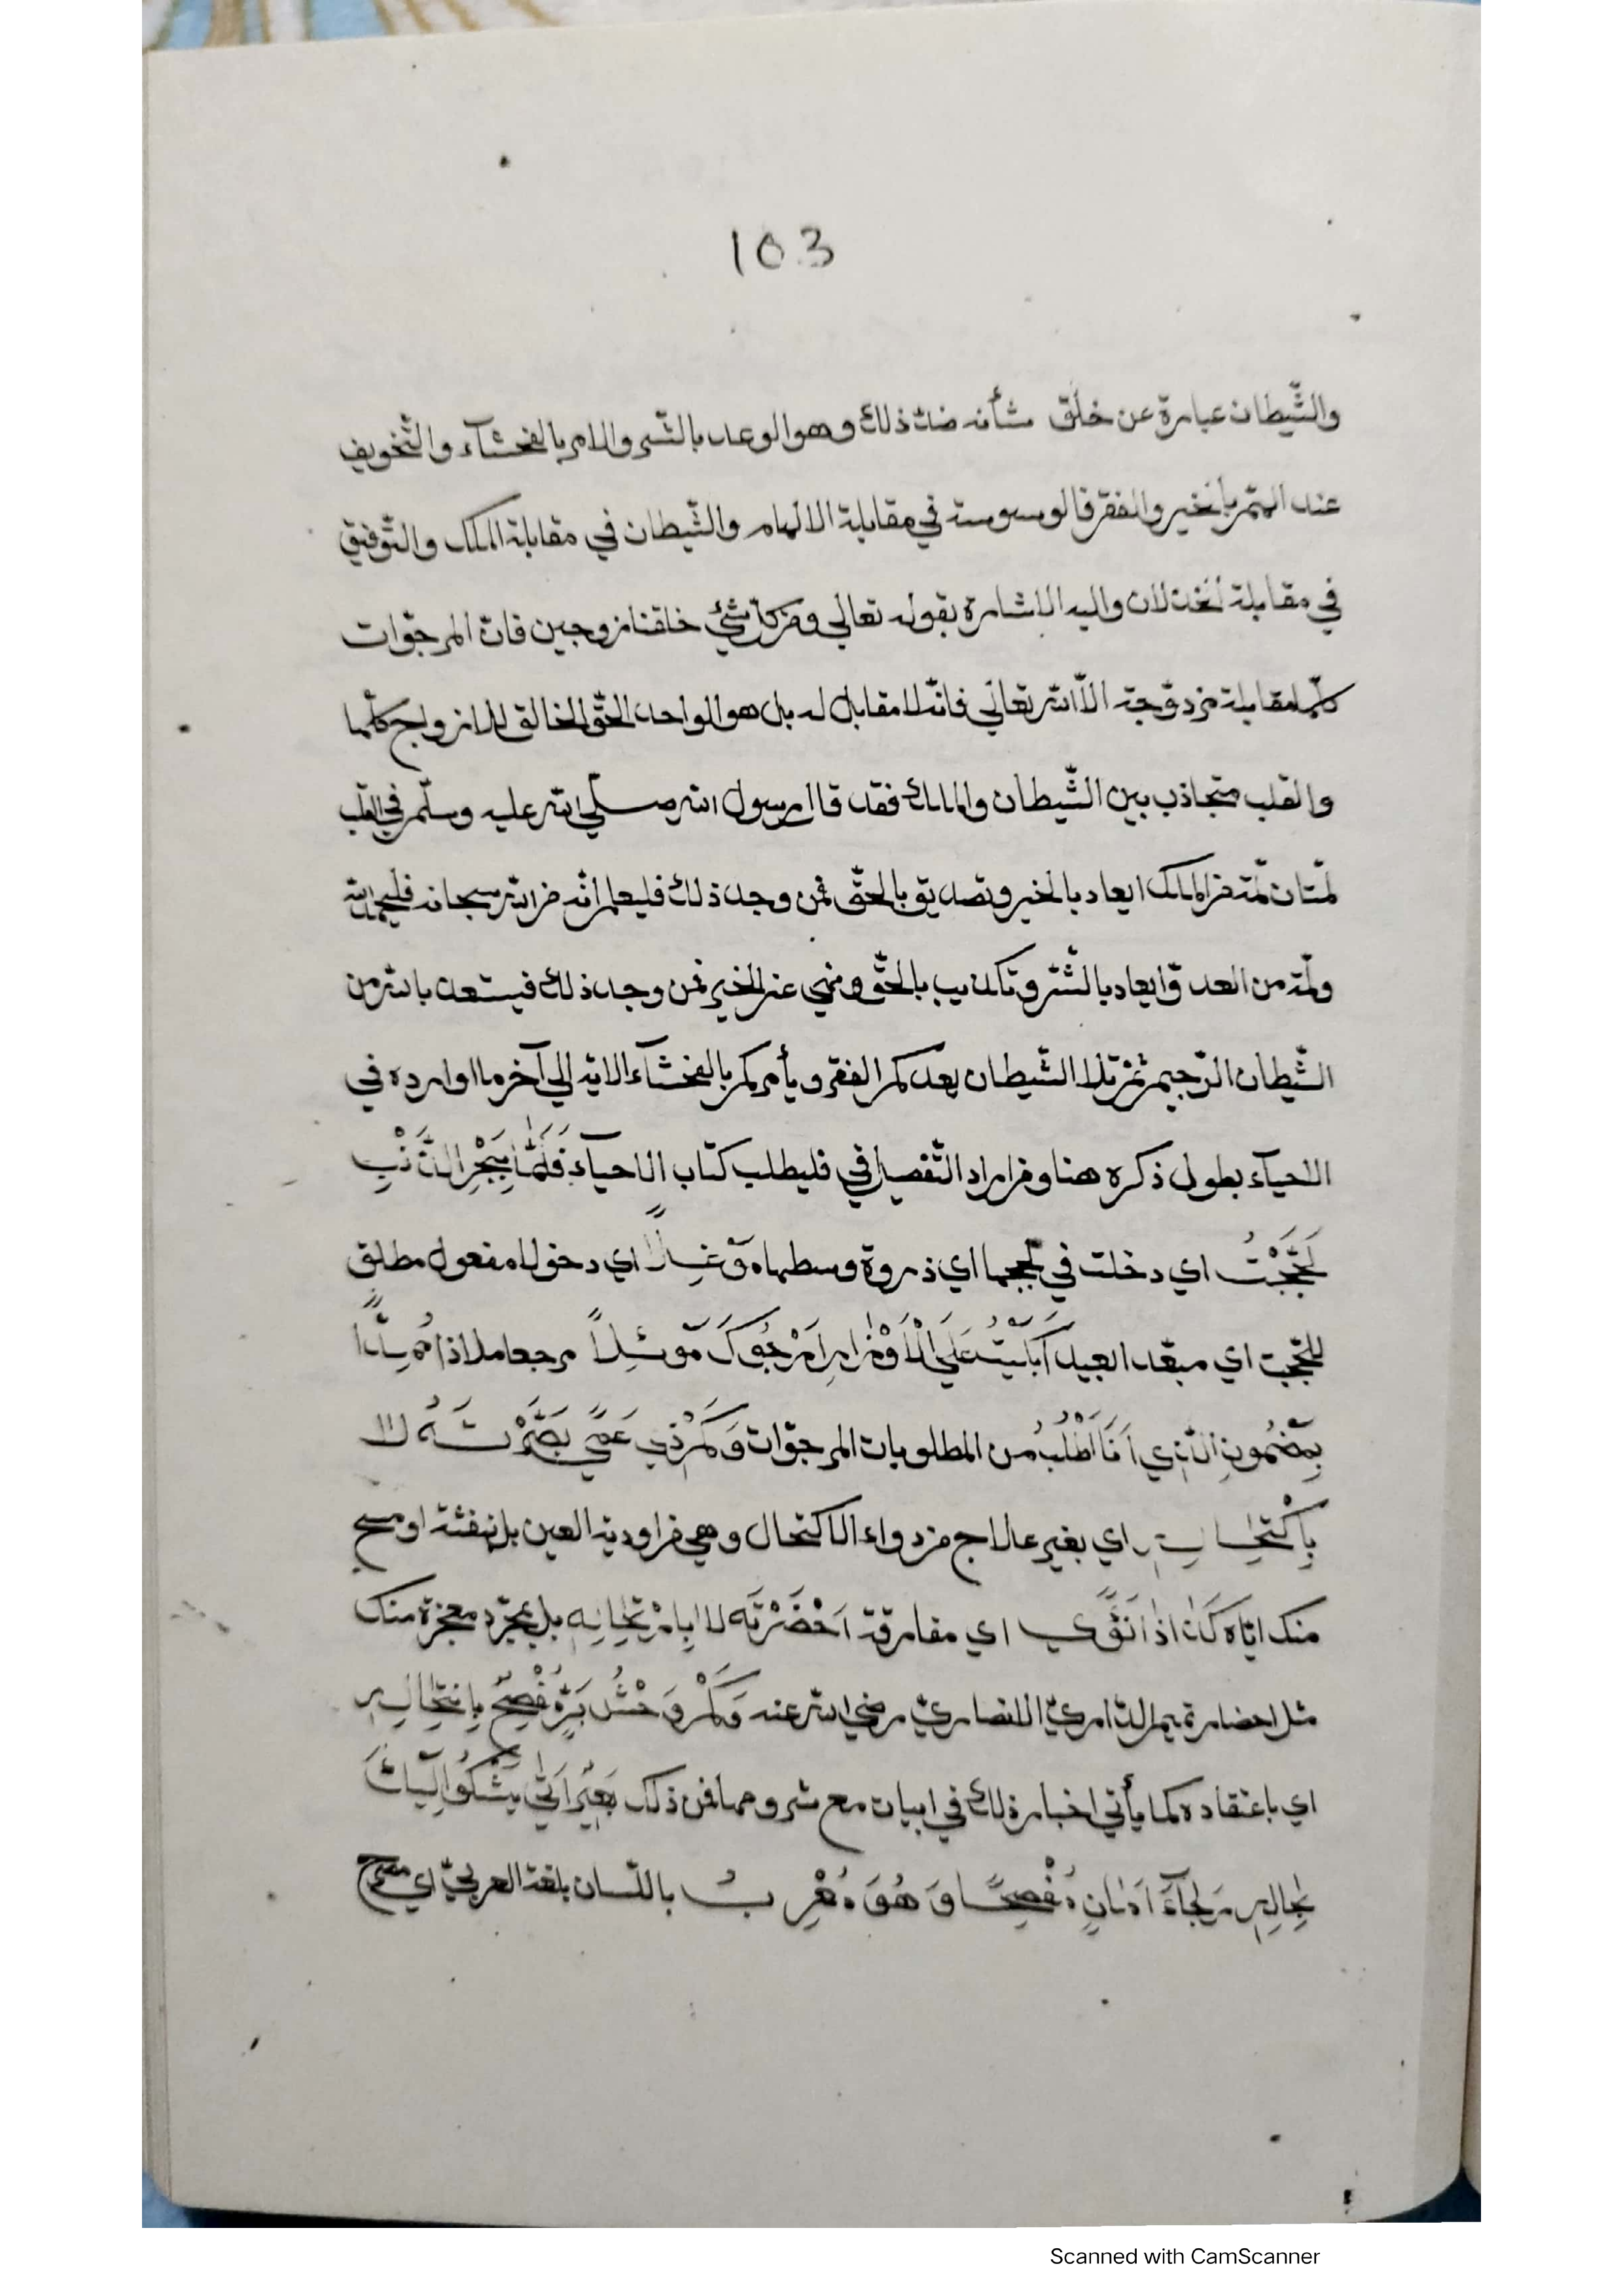 103
والشّيطان عبارة عن خلق شأنه ضدّ ذلك وهو الوعد بالشّر والامر بالفحشآء والتّخويف
عند الهمّ بالخير والفقر فالوسوسة في مقابلة الالهام والشّيطان في مقابلة الملك والتّوفيق
في مقابلة الخذلان واليه الاشارة بقوله تعالي ومن كلّ شئ خلقنا زوجين فانّ الموجوات
كلّها مقابلة مزدوّجة الّا الله تعالي فانّه لا مقابل له بل هو الواحد الحقّ الخالق للازواج كلّها
والقلب متجاذب بين الشّيطان والملك فقد قال رسول الله صلّي الله عليه وسلّم في القلب
لمّتان لمّة من الملك ايعاد بالخير وتصديق بالحقّ فمن وجد ذلك فليعلم انّه من الله سبحانه فليحمد الله
ولمّة من العدوّ ايعاد بالشّر وتكذيب بالحقّ ونهي عن الخير فمن وجد ذلك فيستعذ بالله من
الشّيطان الرّجيم ثمّ تلا الشّيطان يعدكم الفقر ويأمركم بالفحشآء الاية الي آخر ما اورده في
الاحيآء بطول ذكره هنا ومن اراد التّفصيل في فليطلب كتاب الاحيآء فَلَمَّا بِبَحْرِ الذَّنْبِ
لَجَّجْتُ اي دخلت في لججها اي ذروة وسطها مَوْغِلًا اي دخولا مفعول مطلق
للجّجت اي مبعّد العبيد اَتَيْتُ عَلَي الْاَوْزَارِ اَرْجُوكَ مَوْئِلًا مرجعا ملاذا مُمِدًّا
بِمَضْمُونِ الَّذِي اَنَا اَطْلُبُ من المطلوبات المرجوّات وَكَمْ ذِي عَمًي بَصَّرْتَهُ لَا
بِاكْتِحَالِهِ اي بغير علاج من دواء الاكتحال وهي من اودية العين بل بنفثة او مسح
منك ايّاه كَانَ اِذَا نَوًي اي مفارقة اَحْضَرْتَه لَا بِارْتِحَالِهِ بل بمجرّد معجزة منك
مثل احضار تميم الدّاريّ الانصاريّ رضي الله عنه وَكَمْ وَحْشِ بَرٍّ مُفْصِحٍ بِانْتِحَالِهِ
اي باعتقاده كما يأتي اخبار ذلك في ابيات مع شروحها فمن ذلك بَعِيْرٌ اَتٰي يَشْكُوا اِلَيْكَ
لِحَالِهِ رَجَآءَ اَمَانٍ مُفْصِحًا وَهُوَ مُعْرِبُ باللّسان بلغة العربيّ اي مصرح